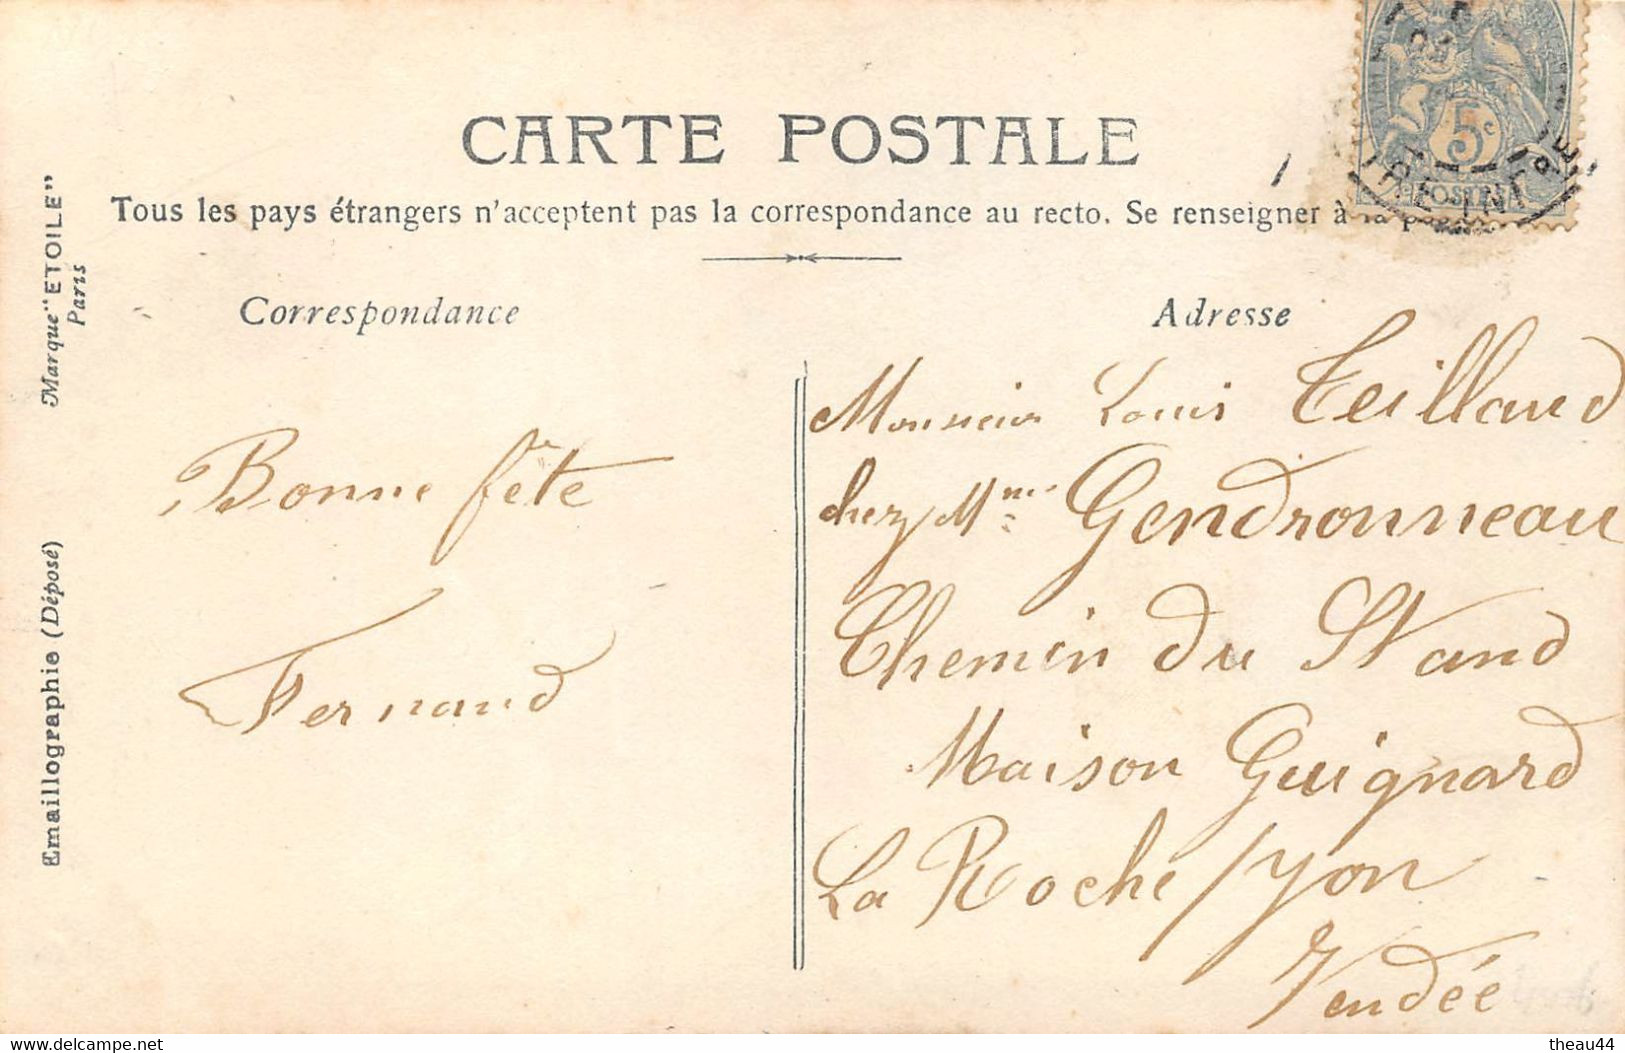 CARTE POSTALE
Tous les pays étrangers n'acceptent pas la correspondance au recto. Se renseigner à la
Correspondance
Bonne fête
Fernand
Adresse
Monsieur Louis Teillaud
chez Mme Gendronneau
Chemin du Stand
Maison Guignard
La Roche / Yon
Vendée
5c
POSTES
Marque "ETOILE"
Paris
Emaillographie (Déposé)
www.delcampe.net
theau44